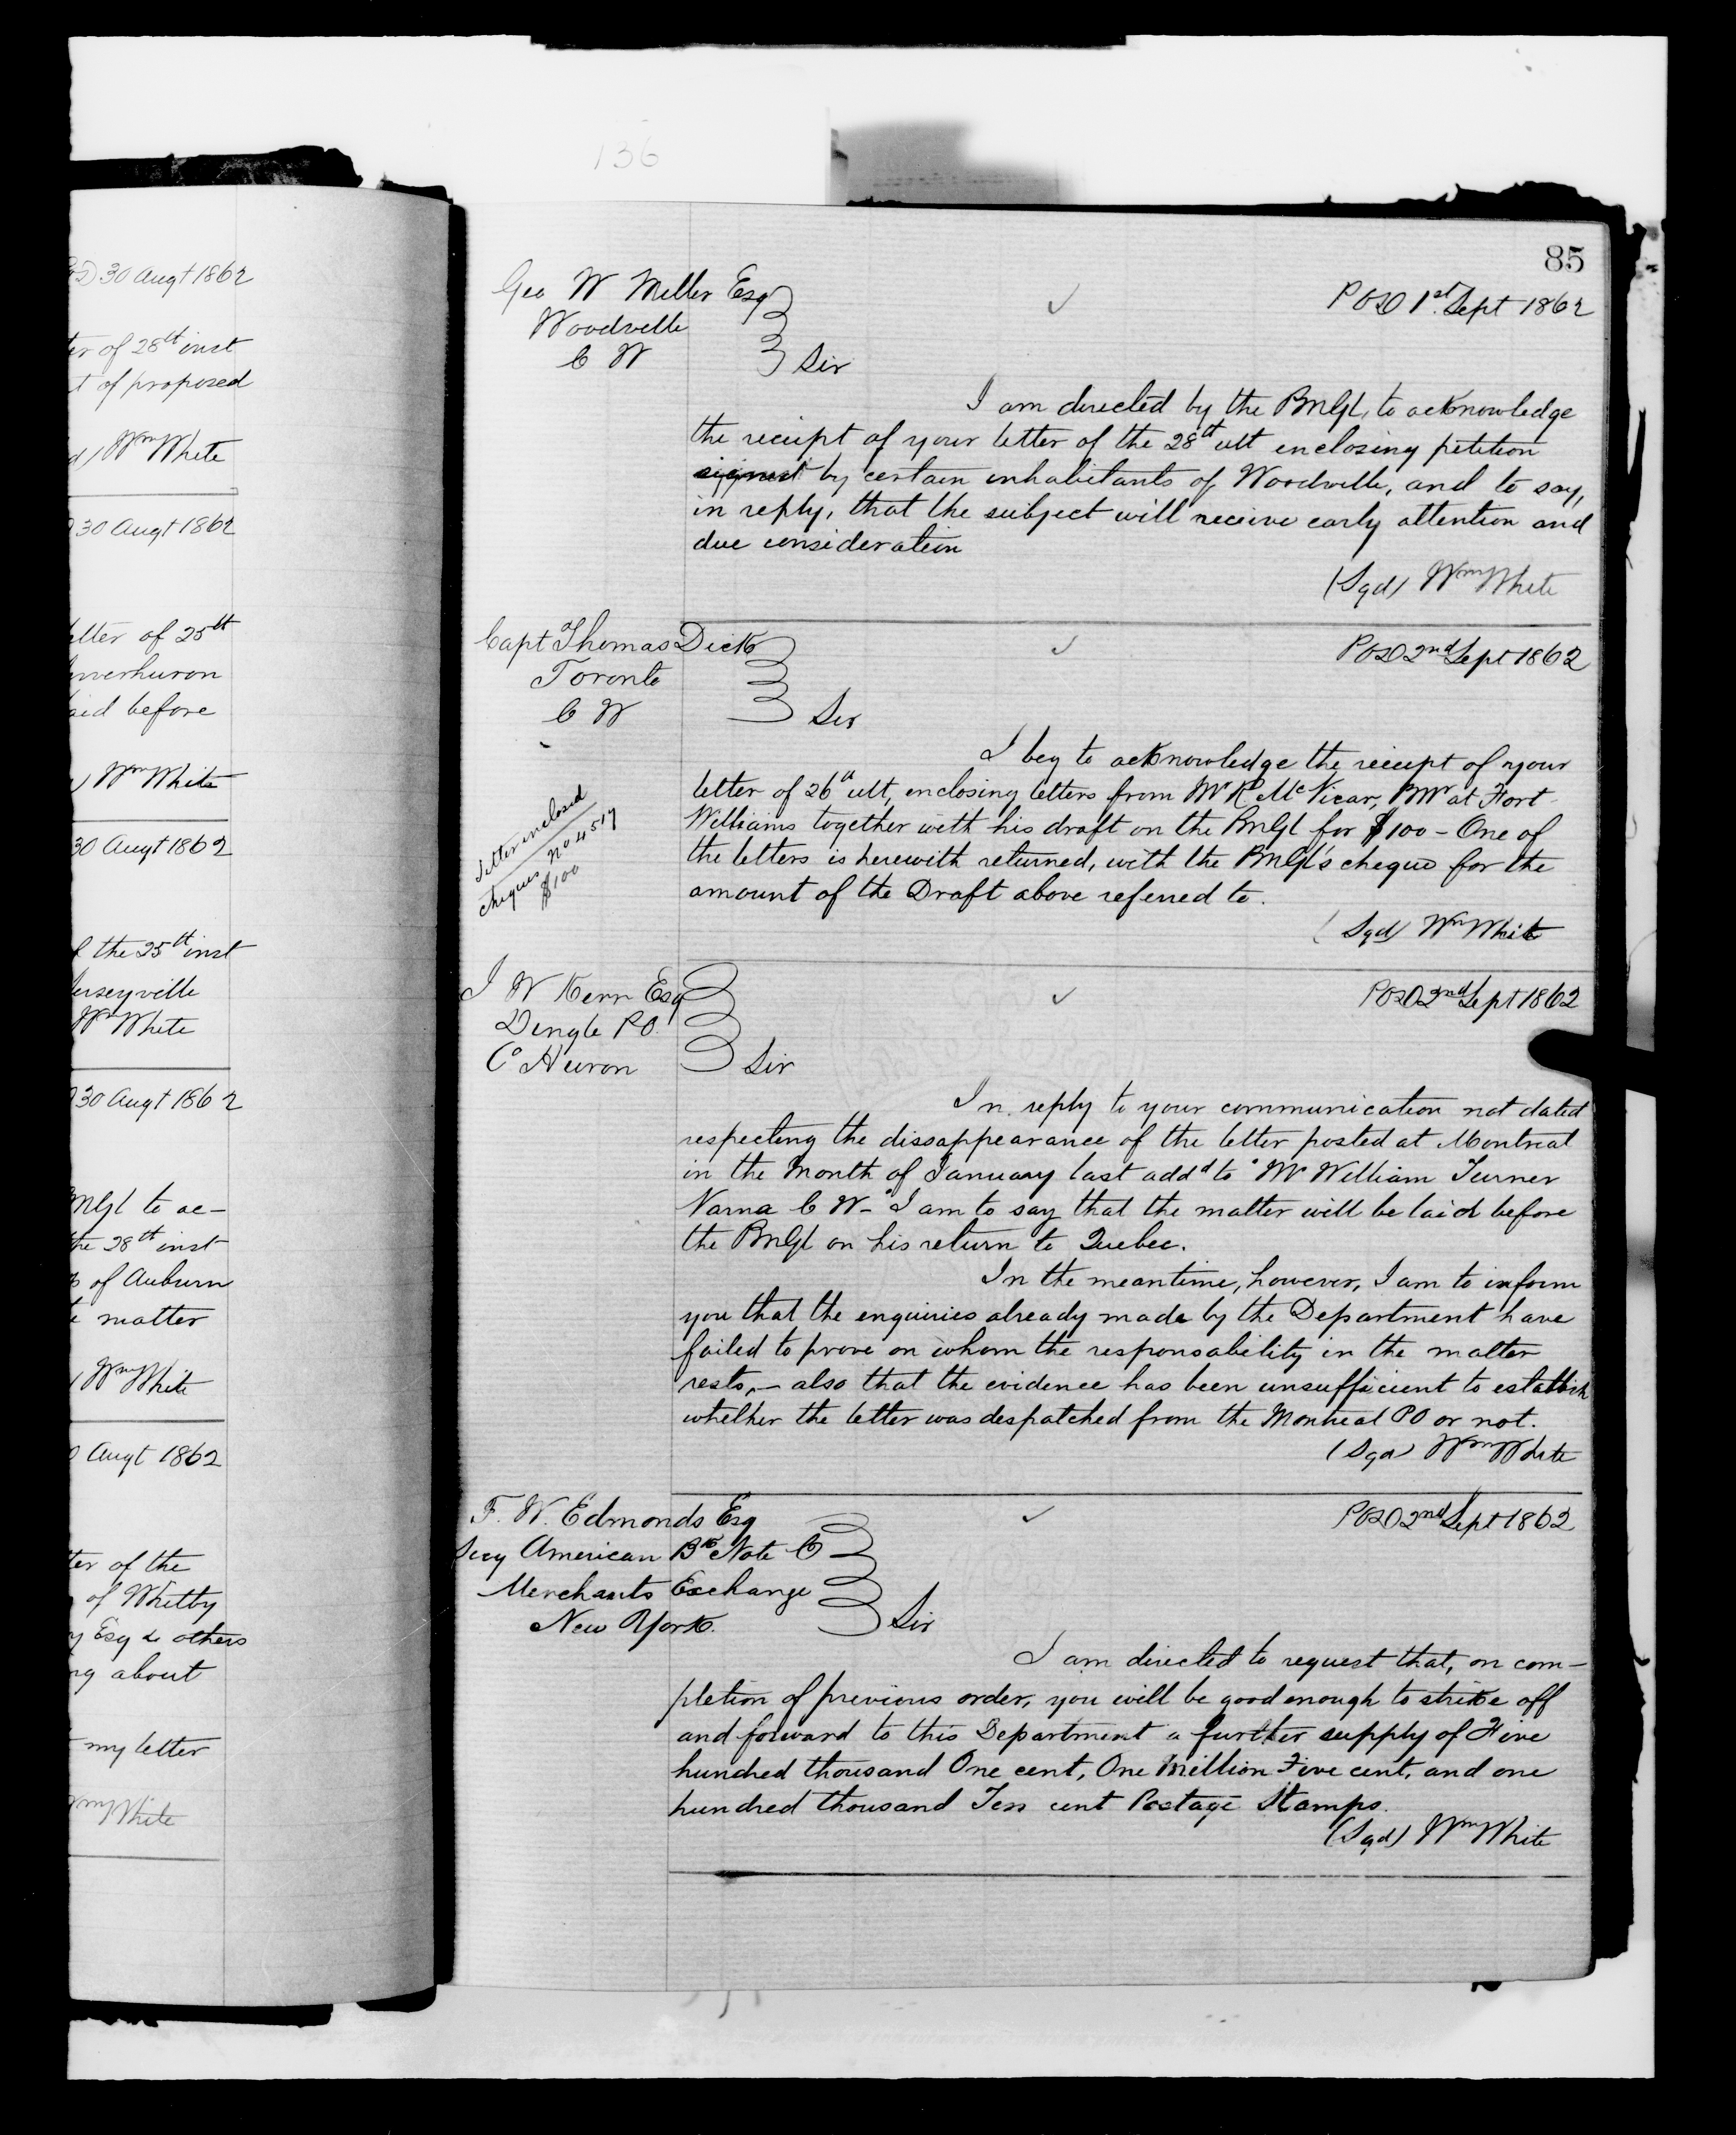 136
2D 30 Augt 1862
ter of 28th inst
t of proposed
d) Wm White
30 Augt 1862
etter of 25th
Inverhuron
aid before
) Wm White
30 Augt 1862
f the 25th inst
erseyville
Wm White
30 Augt 1862
PMGl to ac-
the 28th inst
of Auburn
e matter
) Wm White
0 Augt 1862
ter of the
of Whitby
y Esq & others
ng about
my letter
Wm White
85
Geo W Miller Esq
POD 1st. Sept 1862
Woodville
C W
Sir
I am directed by the PMGl, to acknowledge
the receipt of your letter of the 28th ult enclosing petition
signed by certain inhabitants of Woodville, and to say,
in reply, that the subject will receive early attention and
due consideration
(Sgd) Wm White
Capt Thomas Dick
POD 2nd Sept 1862
Toronto
C W
Sir
I beg to acknowledge the receipt of your
letter of 26th ult, enclosing letters from Mr R McVicar, PMr at Fort
Williams together with his draft on the PMGl for $100 - One of
the letters is herewith returned, with the PMGl's cheque for the
amount of the Draft above referred to.
Letter enclosed
cheques No 4517
$100
(Sgd) Wm White
J W Kerr Esq
POD 2nd Sept 1862
Dingle PO.
Co Huron
Sir
In reply to your communication not dated
respecting the dissappearance of the letter posted at Montreal
in the Month of January last addd to "Mr William Turner
Varna C W-" I am to say that the matter will be laid before
the PMGl on his return to Quebec.
In the meantime, however, I am to inform
you that the enquiries already made by the Department have
failed to prove on whom the responsability in the matter
rests,- also that the evidence has been unsufficient to establish
whether the letter was despatched from the Montreal PO or not.
(Sgd) Wm White
F. W. Edmonds Esq
POD 2nd Sept 1862
Secy American Bk Note Co
Merchants Exchange
New York.
Sir
I am directed to request that, on com-
pletion of previous order, you will be good enough to strike off
and forward to this Department a further supply of Five
hundred thousand One cent, One Million Five cent, and one
hundred thousand Ten cent Postage Stamps.
(Sgd) Wm White